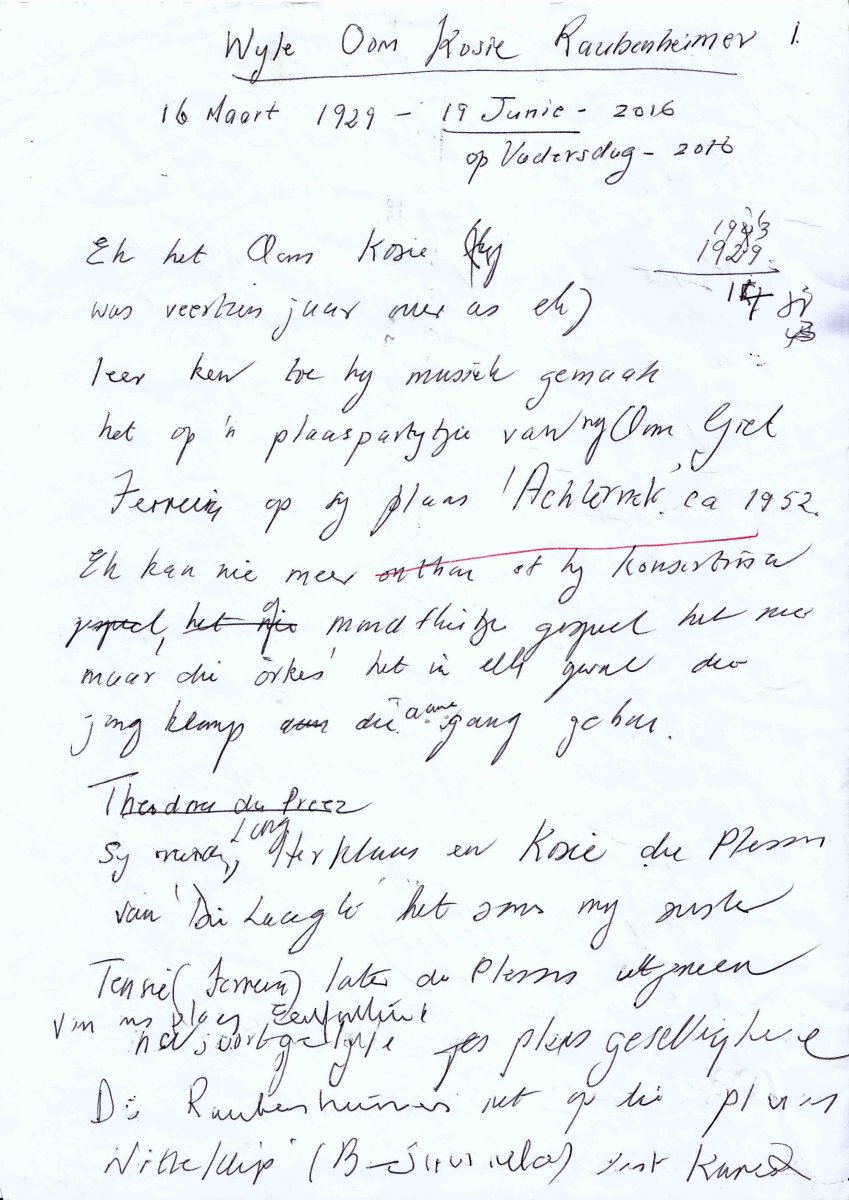 Wyle Oom Kosie Raubenheimer 1.
16 Maart 1929 - 19 Junie - 2016
op Vadersdag - 2016
Ek het Oom Kosie (hy
1929
was veertien jaar ouer as ek)
14
leer ken toe hy musiek gemaak
het op 'n plaaspartytjie van my Oom Giel
Ferreira op sy plaas 'Achtervlek', ca 1952.
Ek kan nie meer onthou of hy konsertina
gespeel, het nie mondfluitjie gespeel het nie
maar die orkes het in elk geval die
jong klomp aan die gang gehou.
Theodore du Preez
Sy vriend, Lang Herklaas en Kosie du Plessis
van 'Die Laagte' het soms my suster
Tensie (Ferreira) later du Plessis uitgeneem
van ons plaas
na plaas geselligheide
Die Raubenheimers het op die plaas
Witteklip